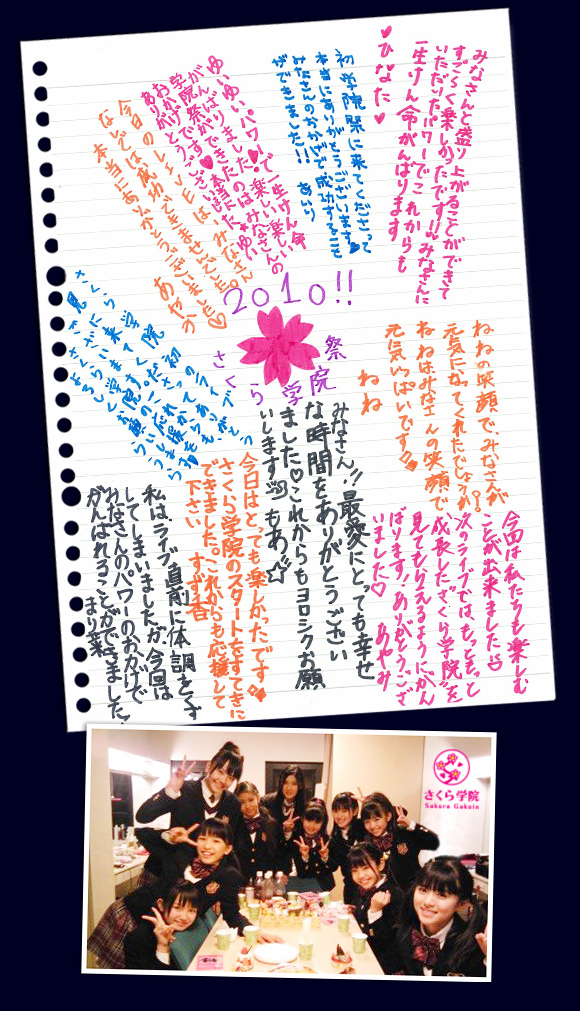 みなさんと盛り上がることができて
すごーく楽しかったです!!みなさんに
いただいたパワーでこれからも
一生けん命がんばります
♥ひなた♥
初学院祭に来てくださって
本当にありがとうございます
みなさんのおかげで成功することが
できました!!! あいり
ゆいゆいパワー♥で一生けん命
がんばりました!楽しい楽しい
学院祭ができたのはみなさんの
おかげです♥本当に
ありがとうございました ゆい
今日のLIVEは、みなさん
なしでは成功できませんでした。
本当にありがとうございました♡
あやか
2010!!
さくら学院祭
ねねの笑顔で、みなさんが
元気になってくれたでしょうか?
ねねはみなさんの笑顔で
元気いっぱいです
ねね
今回は私たちも楽しむ
ことが出来ました
次のライブでは、もっともっと
成長した"さくら学院"を
見てもらえるようにがん
ばります!ありがとうござ
いました♡ あやみ
みなさん!!最愛にとっても幸せ
な時間をありがとうござい
ました♡これからもヨロシクお願
いします もあ
今日はとっても楽しかったです
さくら学院のスタートをすてきに
できました。これからも応援して
下さい すず香
私は、ライブ直前に体調をくず
してしまいましたが、今回は
みなさんのパワーのおかげで
がんばれることができました!
まり菜
さくら学院
Sakura Gakuin